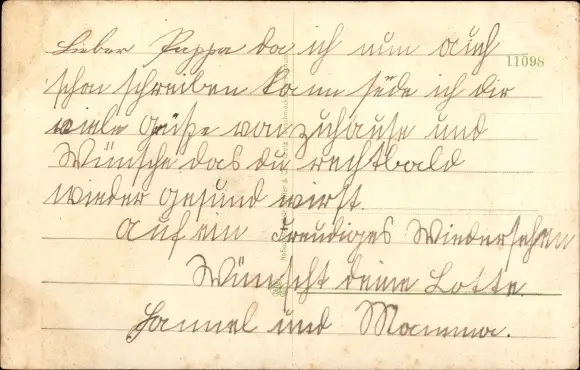 Lieber Pappa da ich nun auch
11098
schon schreiben kann sede ich dir
viele Grüße von zuhause und
Wünsche das du rechtbald
wieder gesund wirst.
auf ein Freudiges Wiedersehen
Wünscht deine Lotte
Hannel und Mamma.